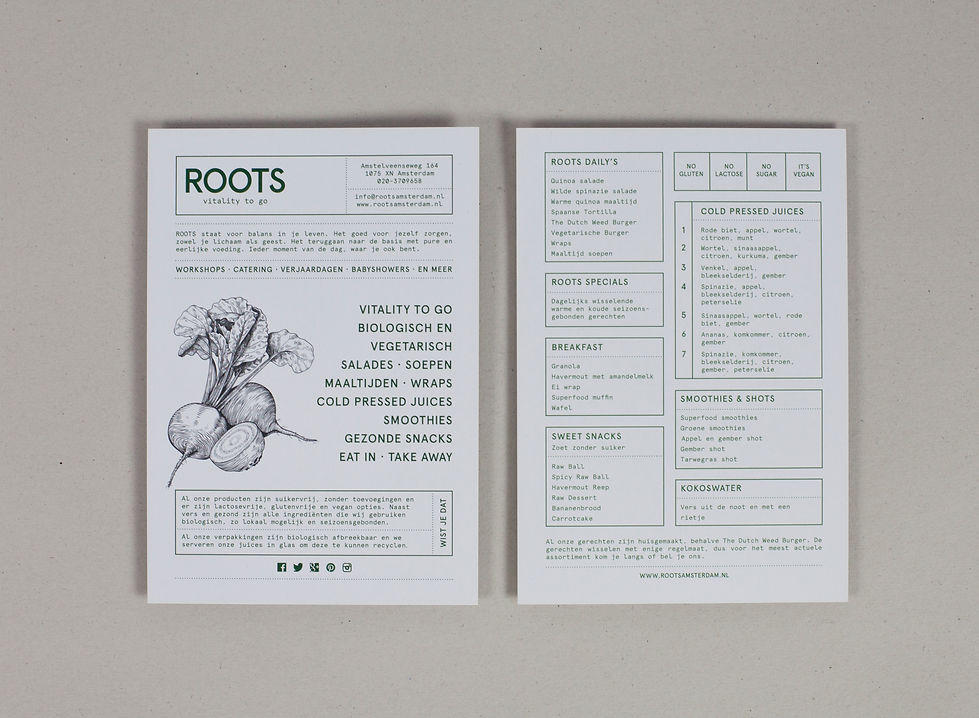 ROOTS
vitality to go
Amstelveenseweg 164
1075 XN Amsterdam
020-3709658
info@rootsamsterdam.nl
www.rootsamsterdam.nl
ROOTS staat voor balans in je leven. Het goed voor jezelf zorgen,
zowel je lichaam als geest. Het teruggaan naar de basis met pure en
eerlijke voeding. Ieder moment van de dag, waar je ook bent.
WORKSHOPS · CATERING · VERJAARDAGEN · BABYSHOWERS · EN MEER
VITALITY TO GO
BIOLOGISCH EN
VEGETARISCH
SALADES · SOEPEN
MAALTIJDEN · WRAPS
COLD PRESSED JUICES
SMOOTHIES
GEZONDE SNACKS
EAT IN · TAKE AWAY
Al onze producten zijn suikervrij, zonder toevoegingen en
er zijn lactosevrije, glutenvrije en vegan opties. Naast
vers en gezond zijn alle ingrediënten die wij gebruiken
biologisch, zo lokaal mogelijk en seizoensgebonden.
Al onze verpakkingen zijn biologisch afbreekbaar en we
serveren onze juices in glas om deze te kunnen recyclen.
WIST JE DAT
ROOTS DAILY'S
Quinoa salade
Wilde spinazie salade
Warme quinoa maaltijd
Spaanse Tortilla
The Dutch Weed Burger
Vegetarische Burger
Wraps
Maaltijd soepen
ROOTS SPECIALS
Dagelijks wisselende
warme en koude seizoens-
gebonden gerechten
BREAKFAST
Granola
Havermout met amandelmelk
Ei wrap
Superfood muffin
Wafel
SWEET SNACKS
Zoet zonder suiker
Raw Ball
Spicy Raw Ball
Havermout Reep
Raw Dessert
Bananenbrood
Carrotcake
NO
GLUTEN
NO
LACTOSE
NO
SUGAR
IT'S
VEGAN
COLD PRESSED JUICES
1 Rode biet, appel, wortel,
citroen, munt
2 Wortel, sinaasappel,
citroen, kurkuma, gember
3 Venkel, appel,
bleekselderij, gember
4 Spinazie, appel,
bleekselderij, citroen,
peterselie
5 Sinaasappel, wortel, rode
biet, gember
6 Ananas, komkommer, citroen,
gember
7 Spinazie, komkommer,
bleekselderij, citroen,
gember, peterselie
SMOOTHIES & SHOTS
Superfood smoothies
Groene smoothies
Appel en gember shot
Gember shot
Tarwegras shot
KOKOSWATER
Vers uit de noot en met een
rietje
Al onze gerechten zijn huisgemaakt, behalve The Dutch Weed Burger. De
gerechten wisselen met enige regelmaat, dus voor het meest actuele
assortiment kom je langs of bel je ons.
WWW.ROOTSAMSTERDAM.NL